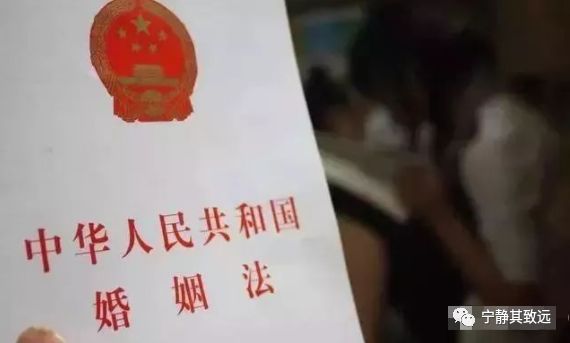 中华人民共和国
婚姻法
宁静其致远